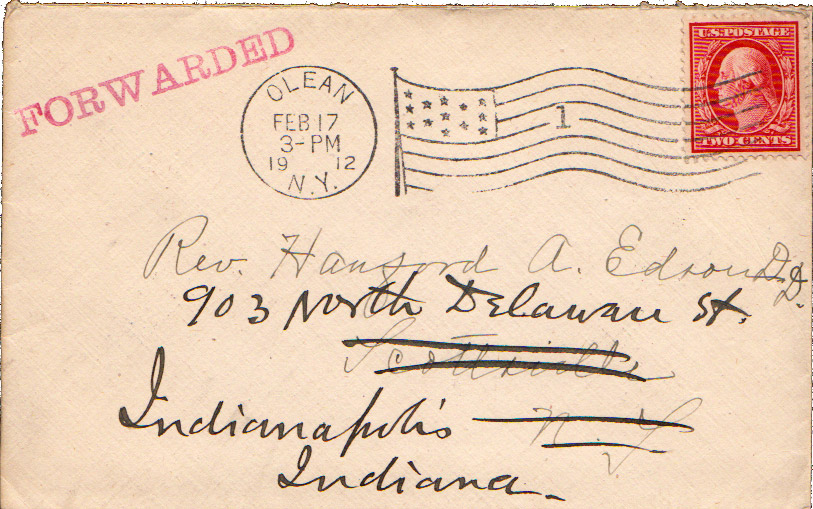 FORWARDED
OLEAN
FEB 17
3-PM
19 12
N.Y.
1
U.S. POSTAGE
TWO CENTS
Rev. Hanford A. Edson D.D.
903 North Delaware St.
Scottsville
Indianapolis
N.Y.
Indiana